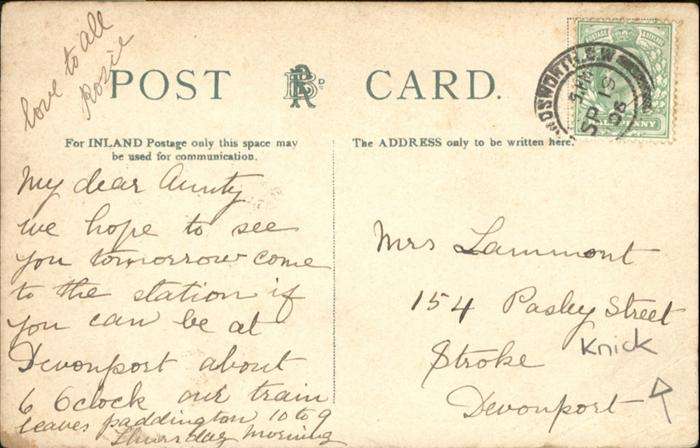 love to all
Rosie
POST CARD.
For INLAND Postage only this space may
be used for communication.
The ADDRESS only to be written here.
My dear Aunty
we hope to see
you tomorrow come
to the station if
you can be at
Devonport about
6 Oclock our train
leaves paddington 10 to 9
Thursday morning
Mrs Lammont
154 Pasley Street
Stroke
Knick
Devonport
NDSWORTH.S.W
SP